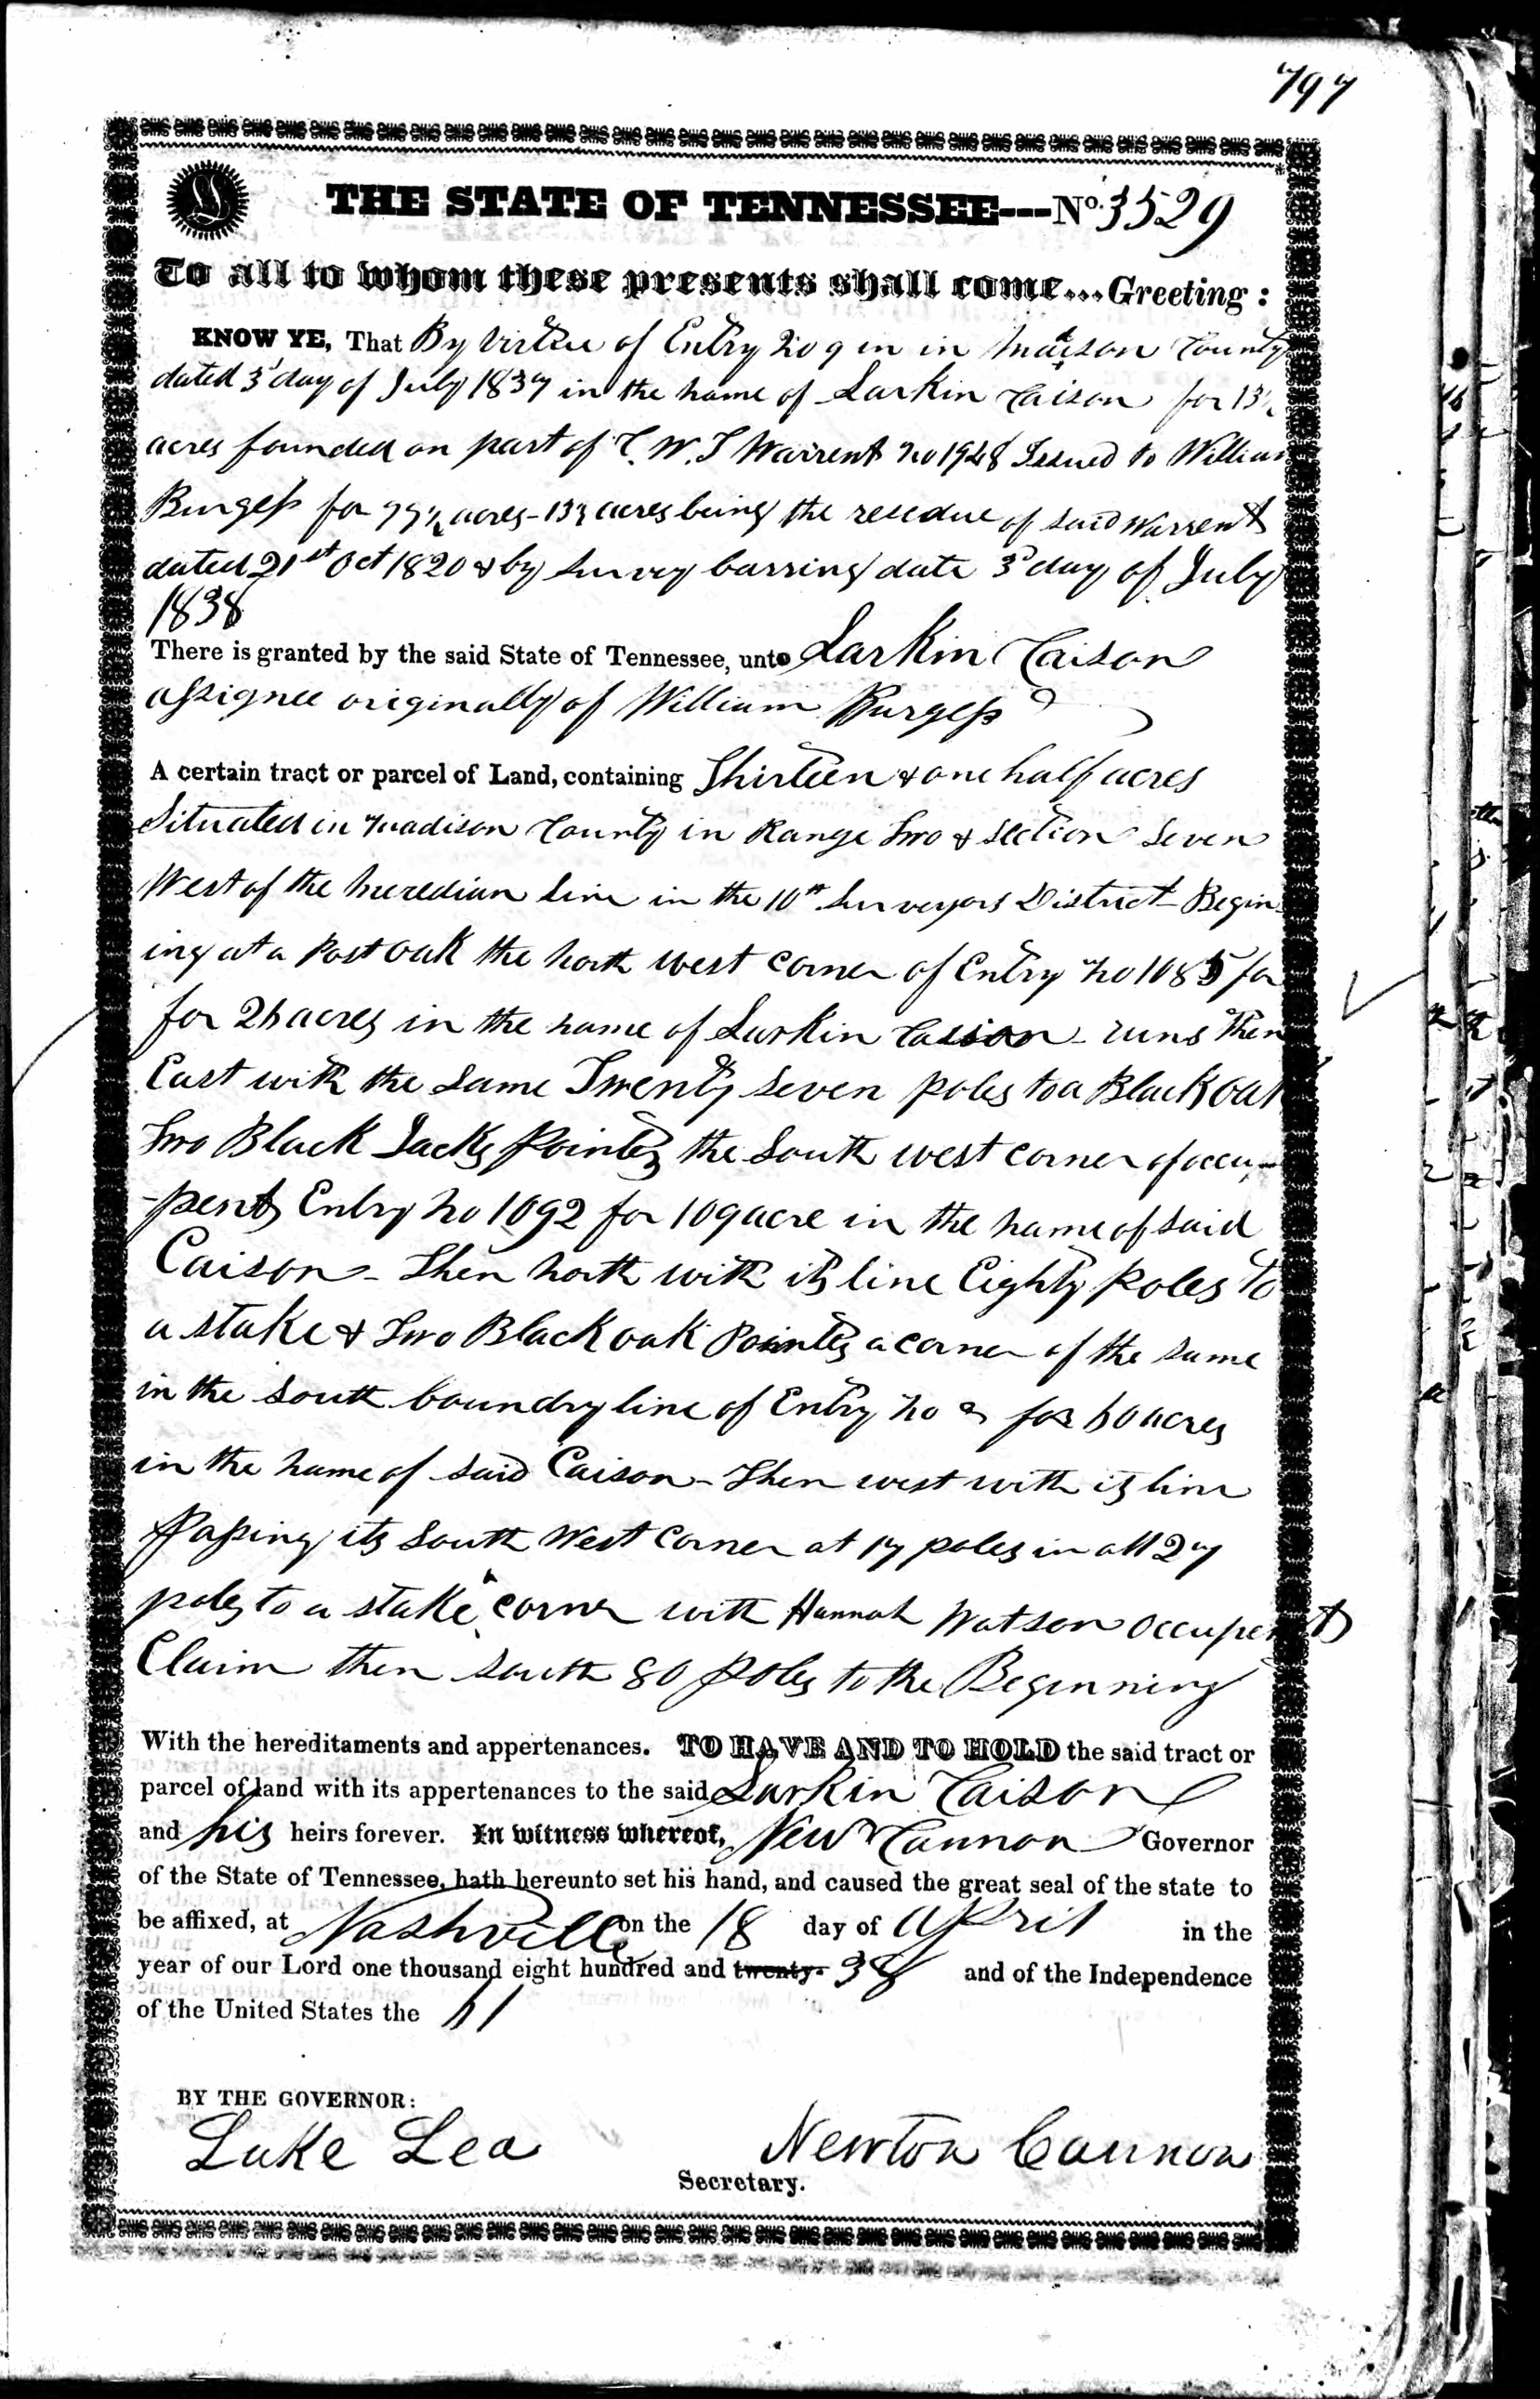 797
THE STATE OF TENNESSEE---No. 3529
To all to whom these presents shall come... Greeting:
KNOW YE, That By Virtue of Entry No 9 in in Madison County
dated 3d day of July 1837 in the name of Larkin Caison for 13½
acres founded on part of C. W. T Warrent No 1948 Issued to William
Burgess for 77½ acres - 13½ acres being the resedue of said Warrent
dated 21st Oct 1820 & by Survey barring date 3d day of July
1838
There is granted by the said State of Tennessee, unto Larkin Caison
assignee originally of William Burgess
A certain tract or parcel of Land, containing Thirteen & one half acres
Situated in Madison County in Range Two & Section Seven
West of the Meredian line in the 10th Surveyors District - Begin
ing at a Post oak the North west corner of Entry No 1085 for
for 26 acres in the name of Larkin Caison - runs Then
East with the Same Twenty Seven poles to a Black oak
Two Black Jacks Pointers the South west corner of occu-
-pents Entry No 1092 for 109 acre in the name of said
Caison - Then North with its line Eighty Poles to
a stake & Two Black oak Pointers a corner of the same
in the South boundry line of Entry No for 60 acres
in the name of said Caison - Then west with its line
Passing its South West Corner at 17 poles in all 27
poles to a stake a corner with Hannah Watson Occupent
Claim then South 80 Poles to the Beginning
With the hereditaments and appertenances. TO HAVE AND TO HOLD the said tract or
parcel of land with its appertenances to the said Larkin Caison
and his heirs forever. In witness whereof, New Cannon Governor
of the State of Tennessee, hath hereunto set his hand, and caused the great seal of the state to
be affixed, at Nashville on the 18 day of April in the
year of our Lord one thousand eight hundred and twenty- 38 and of the Independence
of the United States the 61
BY THE GOVERNOR:
Luke Lea Newton Cannon
Secretary.